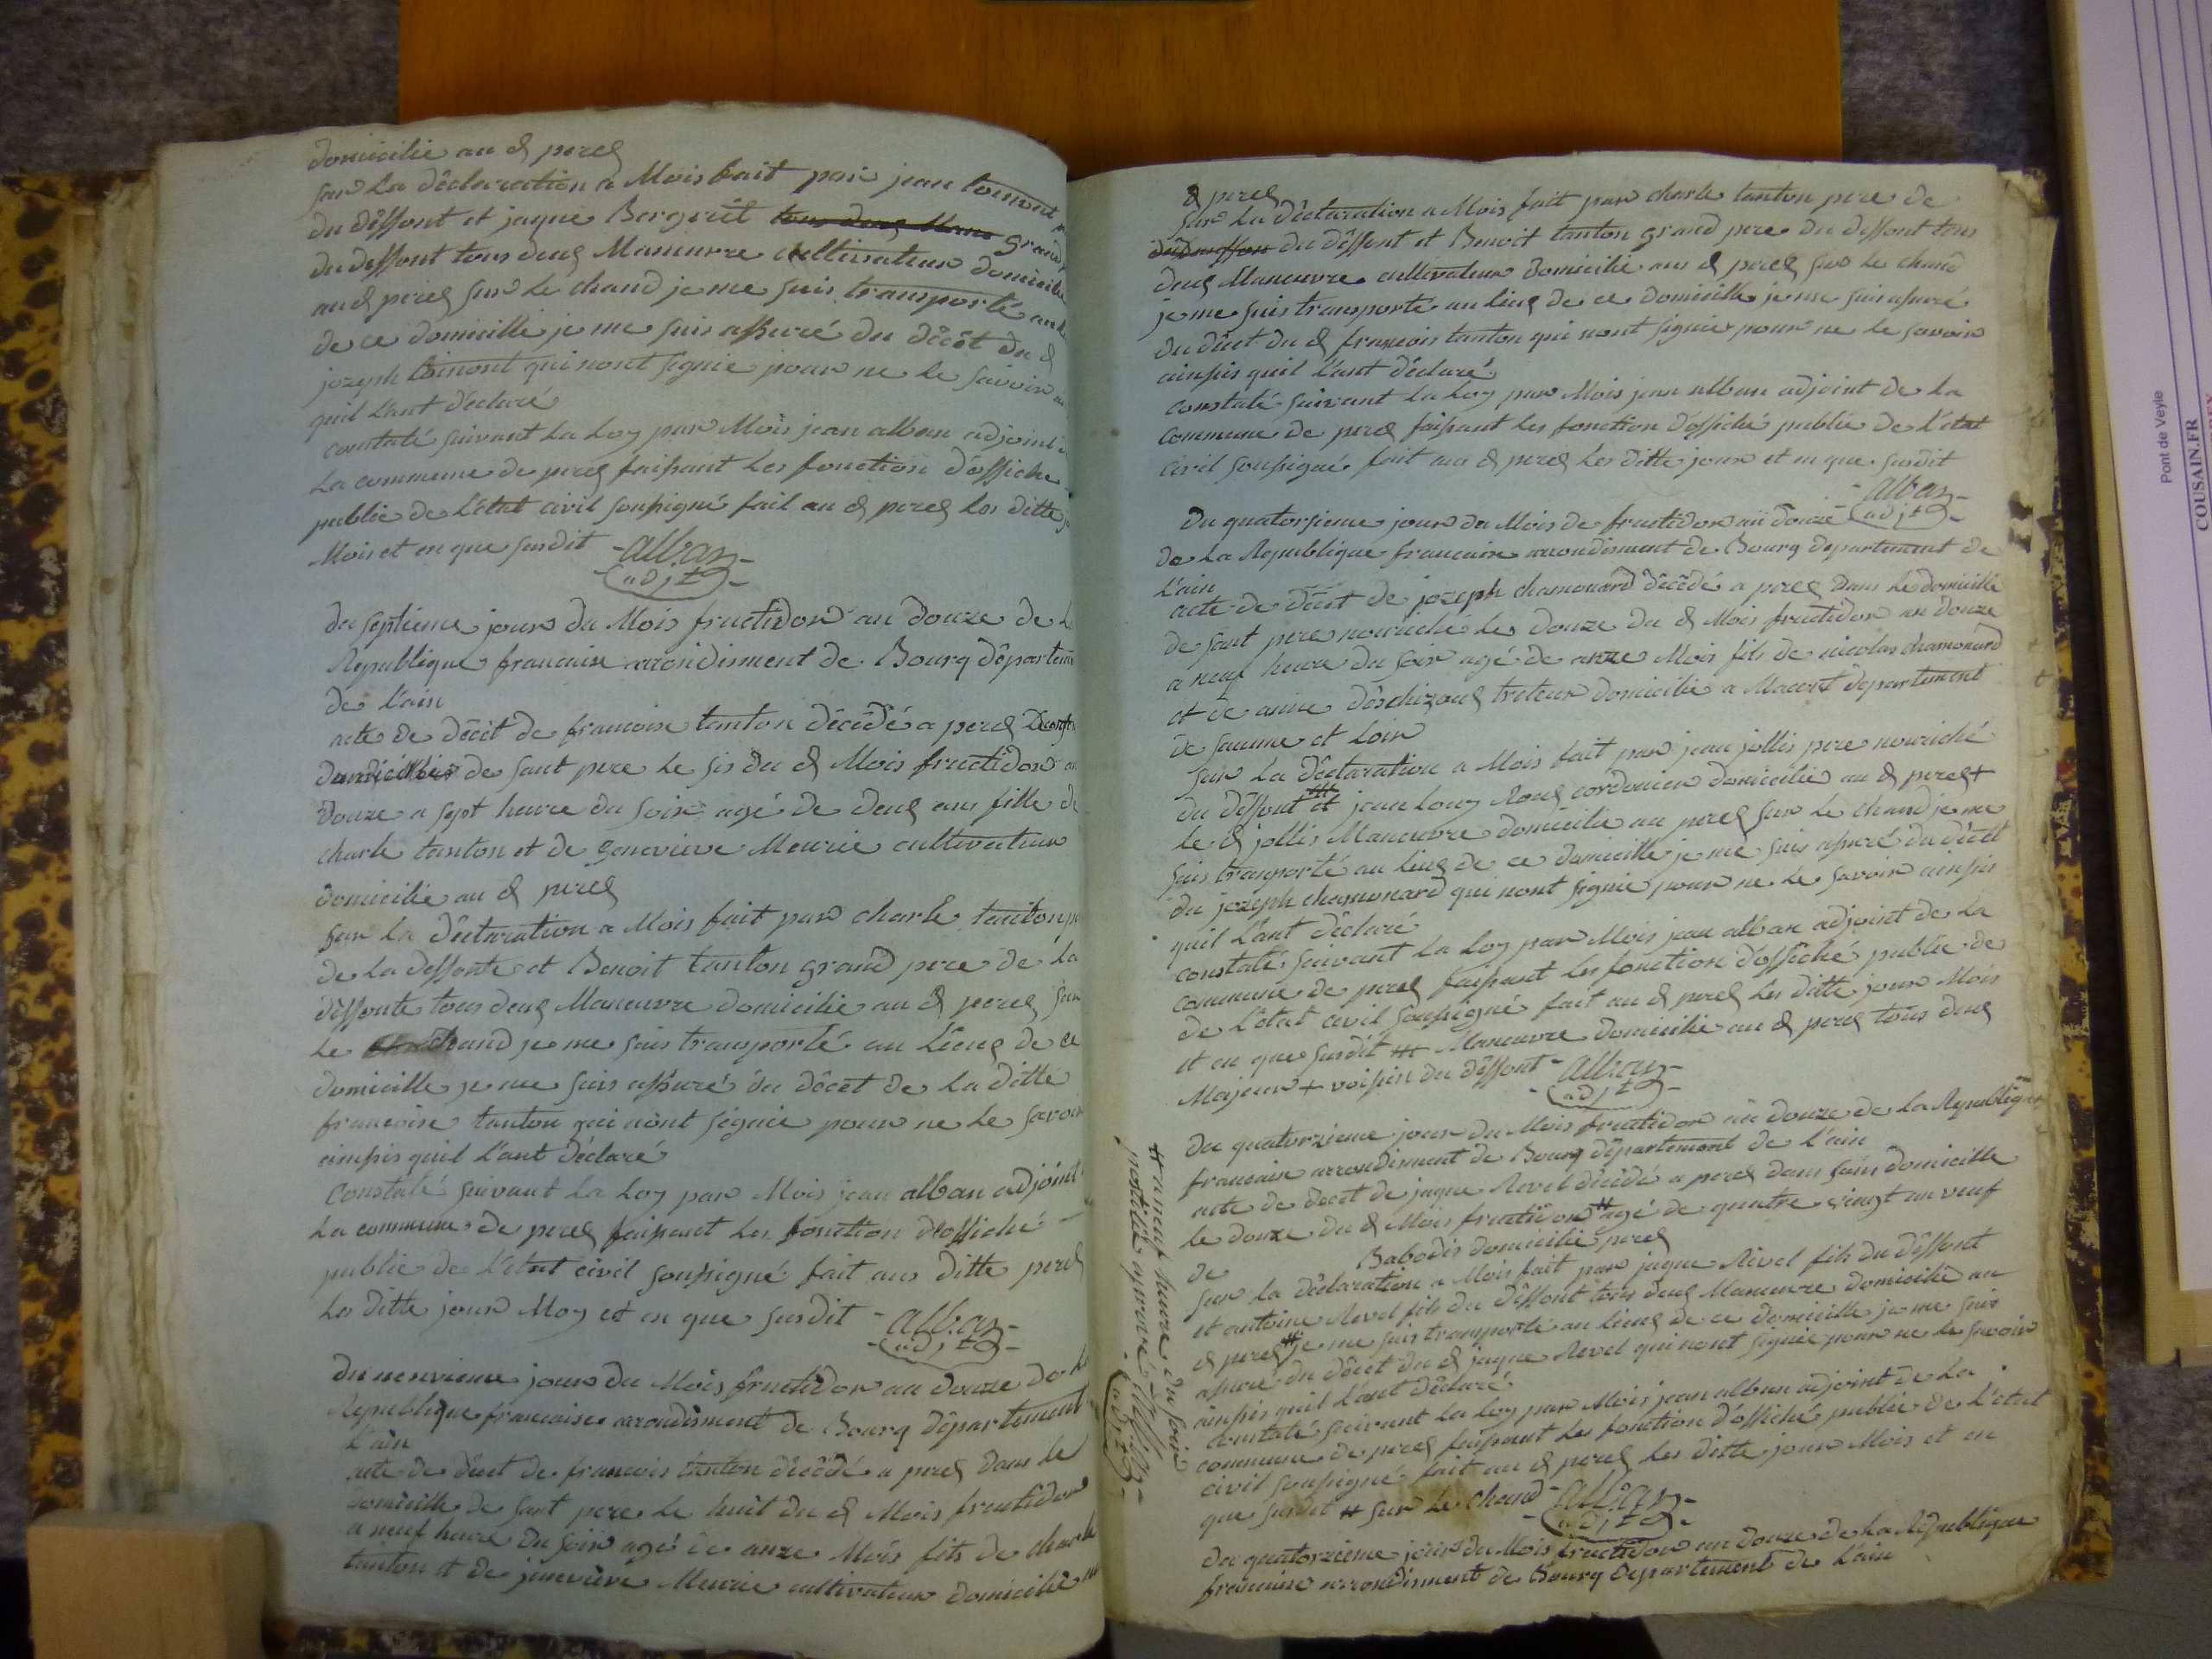 domicilie au d perex
sur La déclaration a Mois fait par jean
du déffont et jaque Bergeret tous deux Manu grand
du deffont tous deux Maneuvre cultivateur domicilie
au d perex sur Le chand je me suis transporté au
de ce domicille je me suis assuré du décèt du d
jozeph qui nont signie pour ne Le savoir
quil L'ant déclaré
constaté suivant La Loy par Mois jean alban adjoint
La commune de perex faissant Les fonction d'offiche
publie de L'état civil soussigné fait au d perex Les ditte
Mois et en que susdit - alban -
adjt
du septieme jours du Mois fructidor an douze de La
Republique francaise arrondisment de Bourg départem
de L'ain
acte de décèt de francoise tanton décédé a perex
de sant pere Le sis du d Mois fructidor an
douze a sept heure du soir agé de deux ans fille de
charle tanton et de genevieve Meurie cultivateur
domicilie au d perex
sur La déclaration a Mois fait par charle tanton
de La deffonte et Benoit tanton grand pere de La
déffonte tous deux Maneuvre domicilie au d perex sur
Le chand je me suis transporté au Lieux de ce
domicille je me suis assuré du décet de La ditte
francoise tanton qui nont signie pour ne Le savoir
ainssis quil L'ant déclaré
Constaté suivant La Loy par Mois jean alban adjoint
La commune de perex faissant Les fonction d'offiché
publie de L'etat civil soussigné fait aus ditte perex
Les ditte jour Moy et en que susdit - alban -
adjt
du neuvieme jours du Mois fructidor an douze de La
Republique francaise arrondisment de Bourg département
L'ain
acte de décet de francois tanton décédé a perex dans Le
domicille de sant pere Le huit du d Mois fructidor
a neuf heure du soir agé de anze Mois fils de charle
tanton et de jenevieve Meurie cultivateur domicilié au
d perex
sur La déclaration a Mois fait par charle tanton pere de
du déffont et Benoit tanton grand pere du deffont tous
deux Maneuvre cultivateur domicilie au d perex sur Le chand
je me suis transporté au Lieux de ce domicille je me suis assuré
du décet du d francois tanton qui nont signie pour ne Le savoir
ainssis quil L'ant déclaré
constaté suivant La Loy par Mois jean alban adjoint de La
commune de perex faissant Les fonction d'offiché publie de L'état
civil soussigné fait au d perex Les ditte jour et en que susdit
- alban -
adjt
Du quatorsieme jour du Mois de fructidor an douze
de La Republique francaise arrondisment de Bourg departement de
L'ain
acte de décèt de jozeph chamonard décédé a perex dans Le domicille
de sant pere nouriché Le douze du d Mois fructidor an douze
a neuf heure du soir agé de anze Mois fils de nicolas chamonard
et de anne treteur domicilie a Macont departement
de saunne et Loir
sur La déclaration a Mois fait par jean jollis pere nouriché
du déffont ## et jean Louy Roux cordonier domicilie au d perex +
Le d jollis Maneuvre domicilie au perex sur Le chand je me
suis tranporté au Lieux de ce domicille je me suis assuré du décèt
du jozeph chamonard qui nont signie pour ne Le savoir ainssis
quil L'ant déclaré
constaté suivant La Loy par Mois jean alban adjoint de La
commune de perex faissant Les fonction d'offiché publie de
de L'état civil soussigné fait au d perex Les ditte jour Mois
et en que susdit ## Maneuvre domicilie au d perex tous deux
Majeur + voissin du déffont - alban -
adjt
du quatorzieme jour du Mois fructidor an douze de La Republique
francaise arrondisment de Bourg département de L'ain
acte de decèt de jaque Revel décédé a perex dans sant domicille
Le douze du d Mois fructidor # agé de quatre vingt an veuf
de Babodis domicilie perex
sur La déclaration a Mois fait par jaque Revel fils du déffont
et antoine Revel fils du déffont tous deux Maneuvre domicilie au
d perex # je me suis transporté au Lieux de ce domicille je me suis
assuré du décet du d jaque Revel qui nont signie pour ne Le savoir
ainssis quil L'ant déclaré
constaté suivant La Loy par Mois jean alban adjoint de La
commune de perex faissant Les fonction d'offiché publie de L'état
civil soussigné fait au d perex Les ditte jour Mois et en
que susdit # sur Le chand - alban -
adjt
# a neuf heure du soir
postille aprouvé - alban -
adjt
du quatorzieme jour du Mois fructidor an douze de La Republique
francaise arrondisment de Bourg département de L'ain
Pont de Veyle
COUSAIN.FR